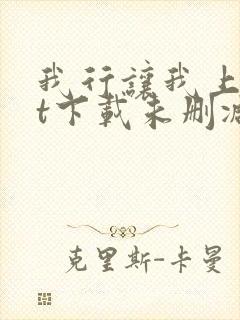 我行讓我上
t下載未刪減
克里斯-卡曼